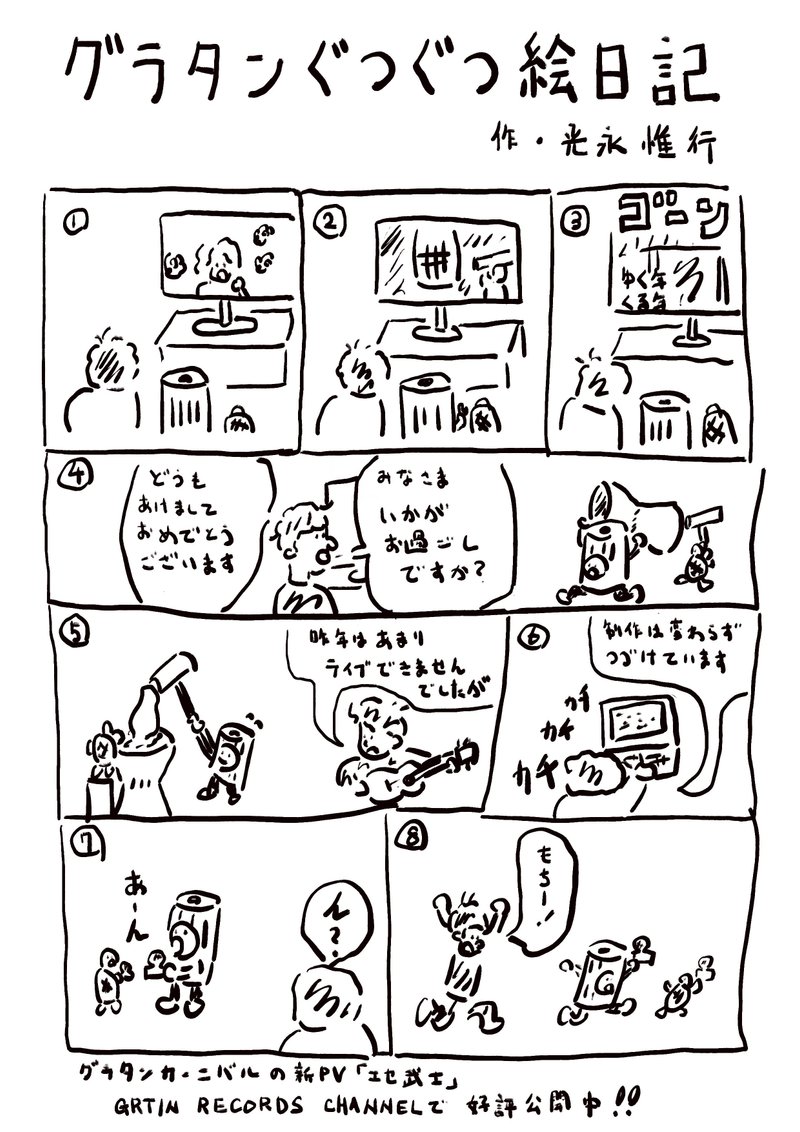 グラタンぐつぐつ絵日記
作・光永惟行
①
②
③
ゴーン
ゆく年
くる年
④
どうも
あけまして
おめでとう
ございます
みなさま
いかが
お過ごし
ですか?
⑤
昨年はあまり
ライブできません
でしたが
⑥
制作は変わらず
つづけています
カチ
カチ
カチ
⑦
あーん
ん?
⑧
もちー!
グラタンカーニバルの新PV「エセ武士」
GRTIN RECORDS CHANNELで 好評公開中!!